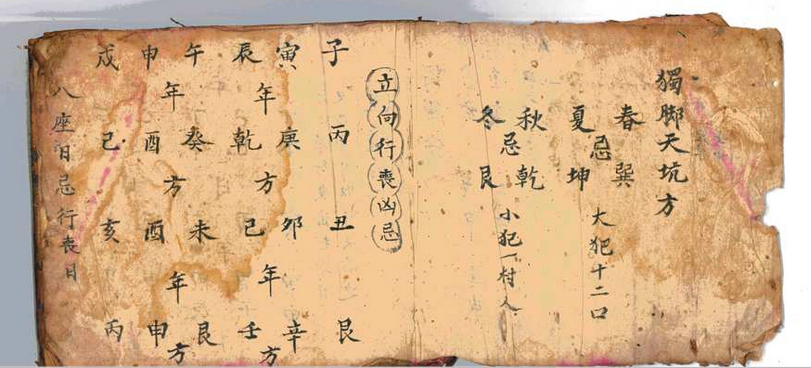 獨脚天坑方
春巽
忌
夏坤
大犯十二口
秋乾
忌
冬艮
小犯一村人
立向行喪凶忌
子丙丑艮
寅庚卯辛
年方年方
辰乾巳壬
午癸未艮
年方年方
申酉酉申
戌己亥丙
八座日忌行喪日